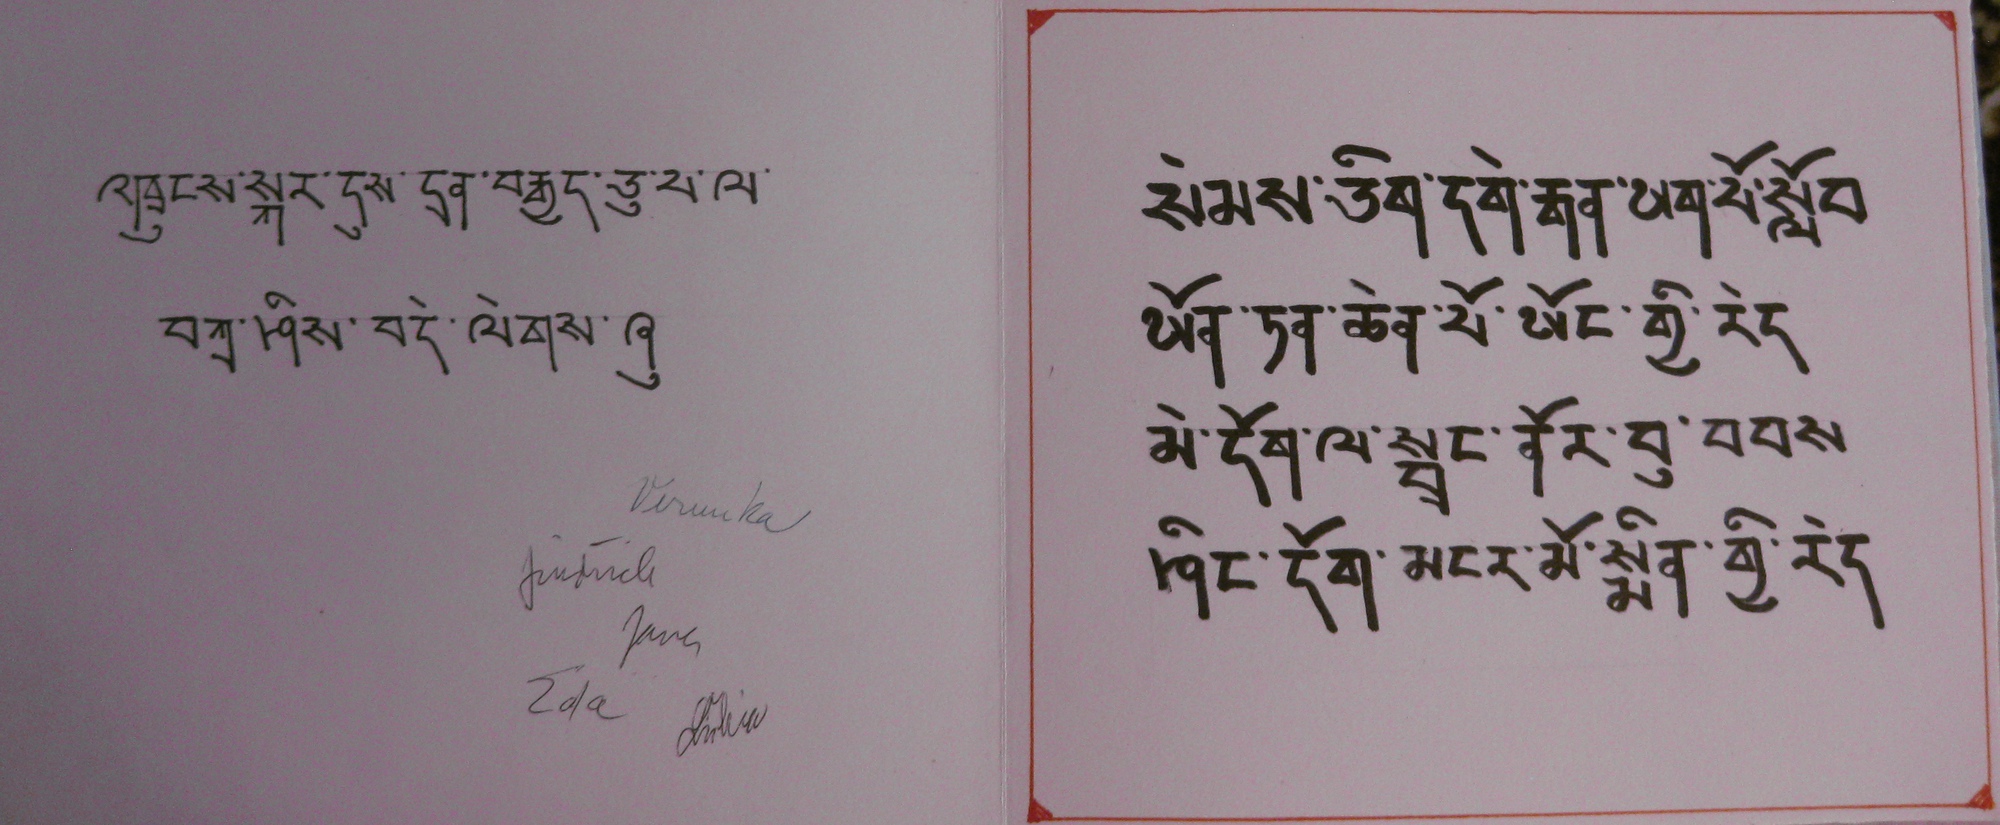 འཁྲུངས་སྐར་དུས་དྲན་བརྒྱད་ཅུ་པ་ལ་
བཀྲ་ཤིས་བདེ་ལེགས་ཞུ
Verunka
Jindřich
Jana
Eda
སེམས་ཅིག་དགེ་རྒན་ཡག་པོ་སློབ
ཡོན་ཏན་ཆེན་པོ་ཡོང་གྱི་རེད
མེ་ཏོག་ལ་སྦྲང་ནོར་བུ་བབས
ཤིང་ཏོག་མངར་མོ་སྨིན་གྱི་རེད